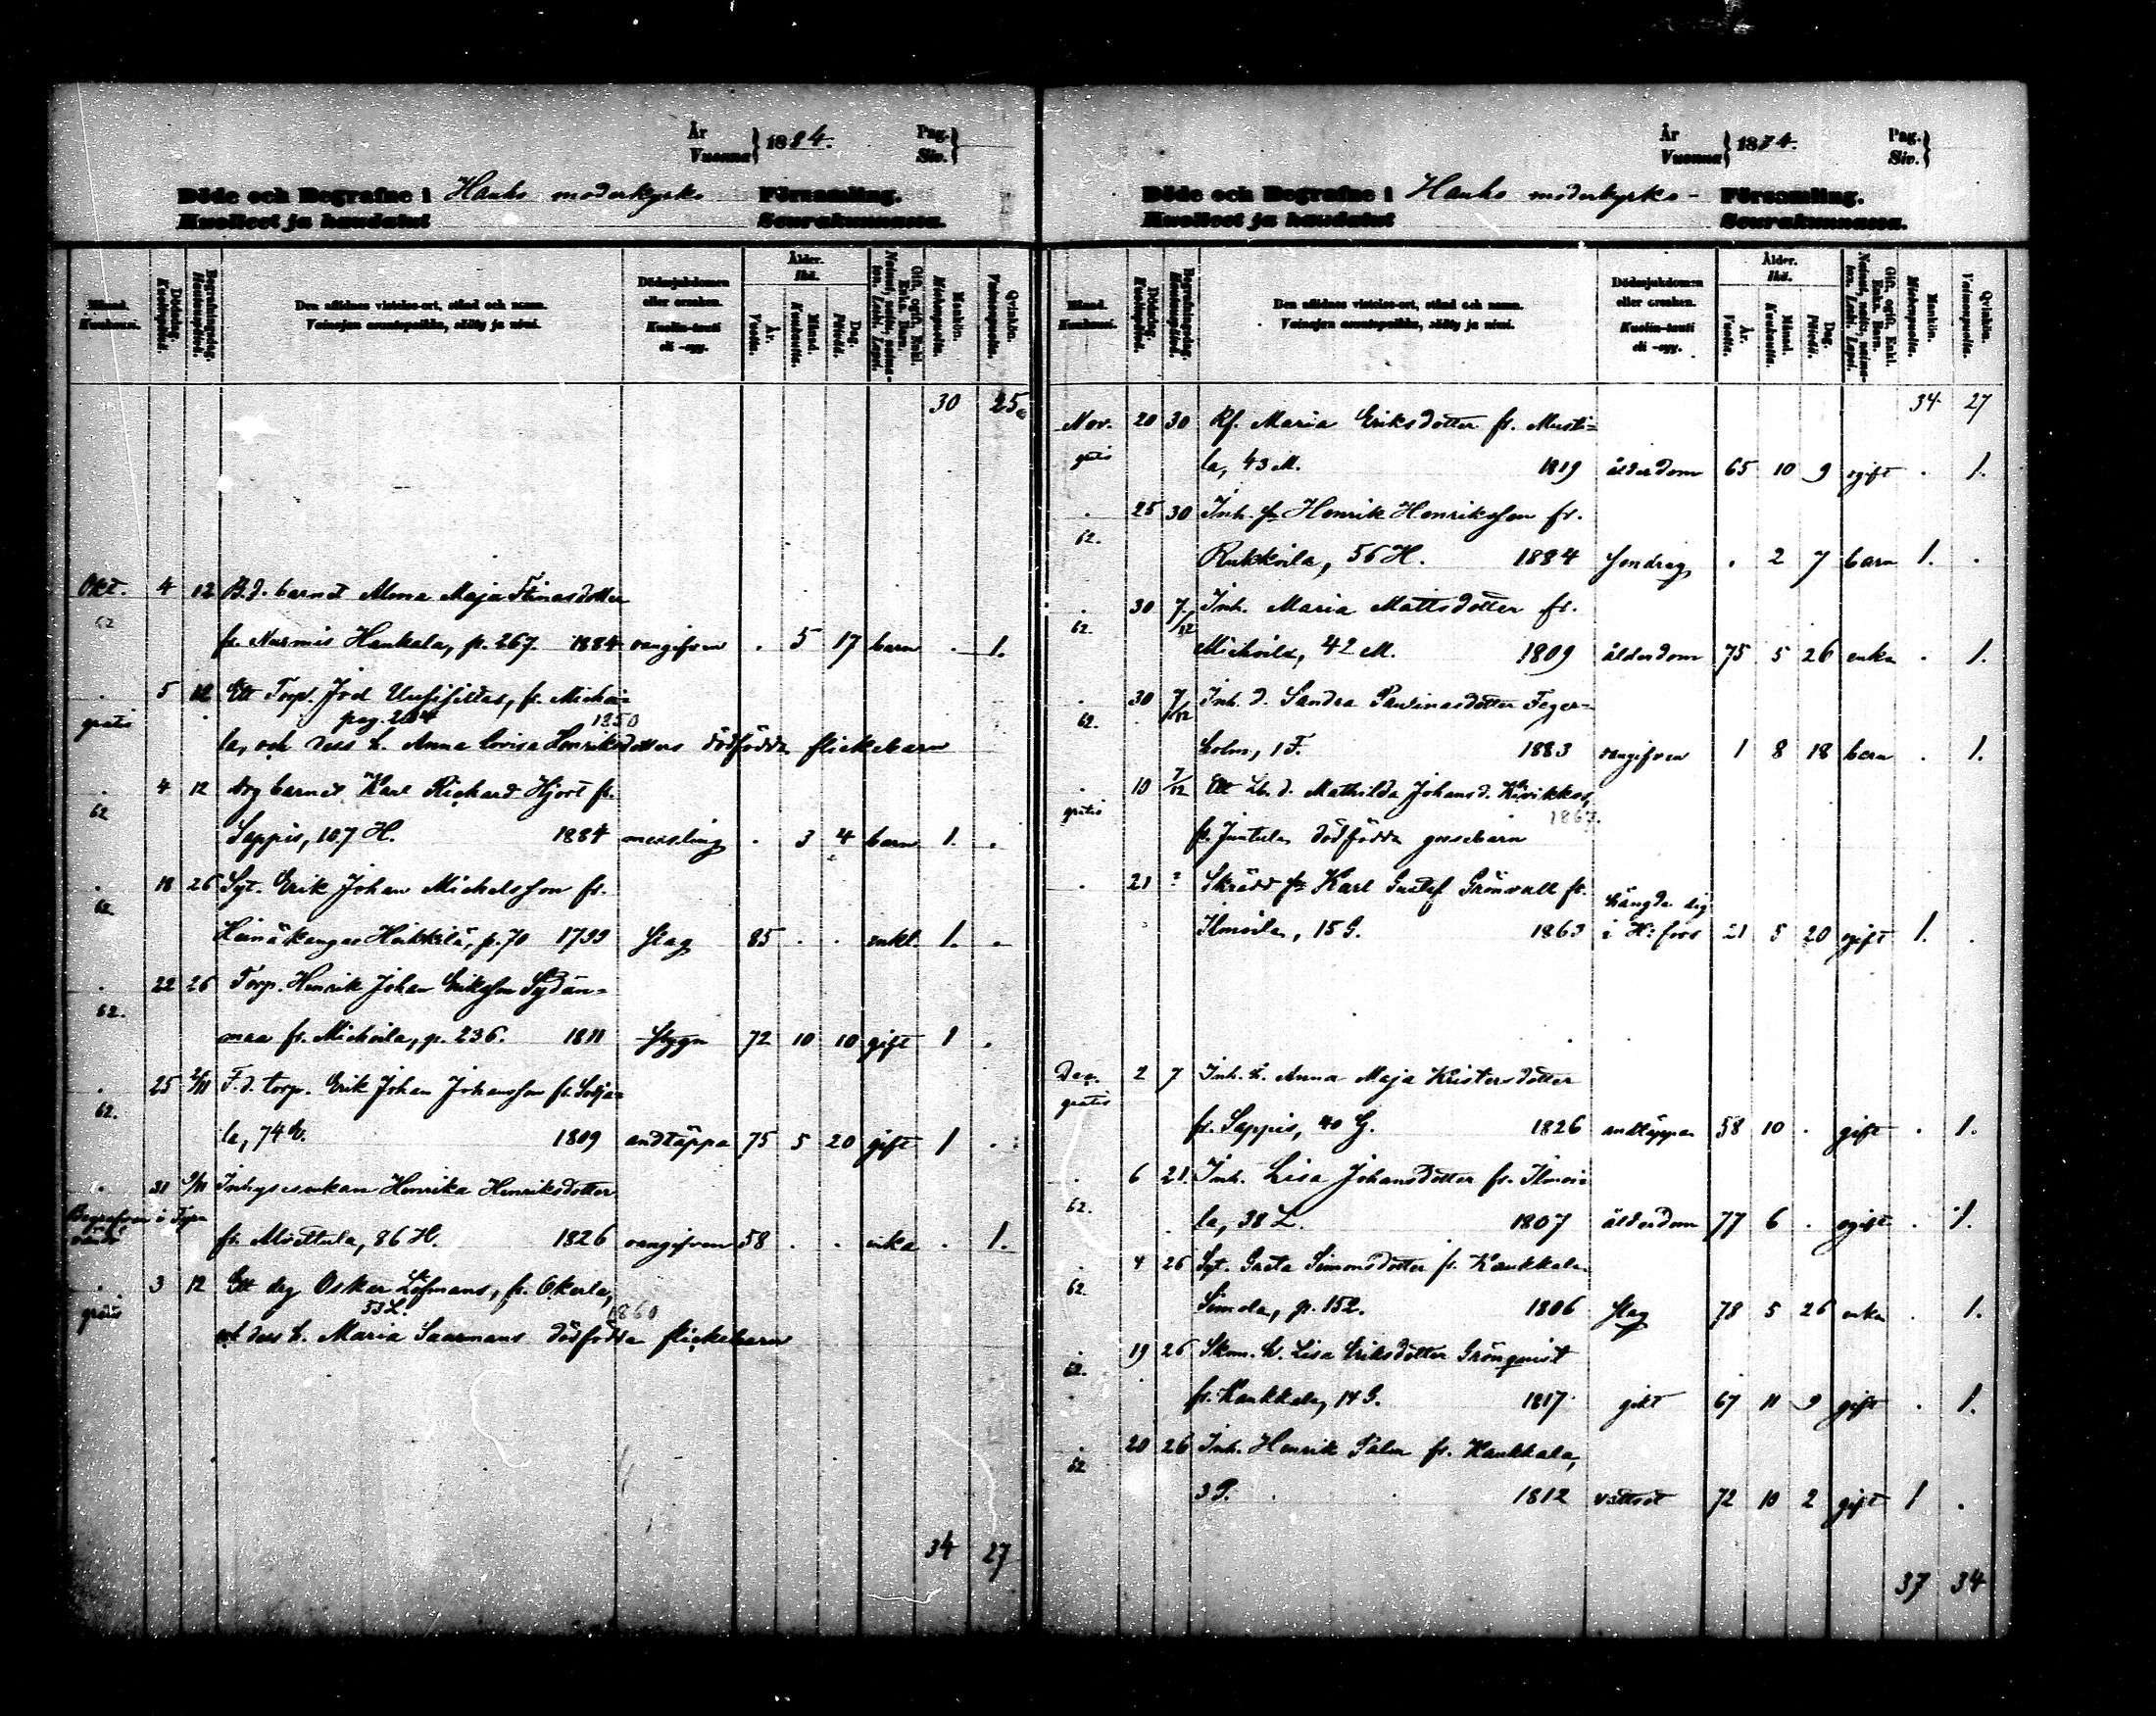 År
Vuonna } 1884. Pag.
Siv. }
Döde och Begrafne i Hauho moderkyrko Församling.
Kuolleet ja haudatut Seurakunnassa.
Månad. Kuukausi. Dödsdag. Kuolinpäivä. Begrafningsdag. Hautauspäivä. Den aflidnes vistelse-ort, stånd och namn. Vainajan asuntopaikka, sääty ja nimi. Dödssjukdomen eller orsaken. Kuolin-tauti eli -syy. Ålder. Ikä. År. Vuotta. Månad. Kuukautta. Dag. Päivää. Gift, ogift, Enkl. Enka. Barn. Mankön. Miehenpuolta. Qvinkön. Vaimonpuolta.
30 25
Okt. 4 12 B.d. barnet Alma Maja Stinasdotter
62 fr. Nurmis Hankala, p. 267. 1884 oangifven . 5 17 barn . 1.
. 5 12 Ett Torp. Joel Uusisillas, fr. Mickoi=
pag. 204 1850
gratis la, och dess h. Anna Lovisa Henriksdotters dödfödda flickebarn
. 4 12 drg barnet Karl Richard Hjort fr.
62 Sappis, 107 H. 1884 messling . 3 4 barn 1. .
. 18 26 Syt. Erik Johan Michelsson fr.
62. Heinäkangas Heikkilä, p. 70 1799 slag 85 . . enkl. 1. .
. 22 26 Torp. Henrik Johan Eriksson Sydän=
62. maa fr. Mickoila, p. 236. 1811 stygn 72 10 10 gift 1 .
. 25 2/11 F.d. torp. Erik Johan Johansson fr. Sotja=
62. la, 74 1809 andtäppa 75 5 20 gift 1 .
. 31 9/11 Inhysesenkan Henrika Henriksdotter
Begrafven i Tyrvändö fr. Miettula, 86 H. 1826 oangifven 58 . . enka . 1.
. 3 12 Ett drg Oskar Löfmans, fr. Okerla,
53 L. 1860
gratis och dess h. Maria Saarmans dödfödda flickebarn
34 27
År
Vuonna } 1884. Pag.
Siv. }
Döde och Begrafne i Hauho moderkyrko- Församling.
Kuolleet ja haudatut Seurakunnassa.
Månad. Kuukausi. Dödsdag. Kuolinpäivä. Begrafningsdag. Hautauspäivä. Den aflidnes vistelse-ort, stånd och namn. Vainajan asuntopaikka, sääty ja nimi. Dödssjukdomen eller orsaken. Kuolin-tauti eli -syy. Ålder. Ikä. År. Vuotta. Månad. Kuukautta. Dag. Päivää. Gift, ogift, Enkl. Enka. Barn. Mankön. Miehenpuolta. Qvinkön. Vaimonpuolta.
34 27
Nov. 20 30 Rf. Maria Eriksdotter fr. Musti=
gratis la, 43 M. 1819 ålderdom 65 10 9 ogift . 1.
. 25 30 Inh. s. Henrik Henriksson fr.
62. Rukkoila, 56 H. 1884 sendrag . 2 7 barn 1. .
. 30 7/12 Inh. Maria Mattsdotter fr.
62. Mickoila, 42 M. 1809 ålderdom 75 5 26 enka . 1.
. 30 7/12 Inh. d. Sandra Paulinasdotter Fager=
62. holm, 1 F. 1883 oangifven 1 8 18 barn . 1.
. 10 7/12 Ett Lb. d. Mathilda Johansd. Kivikkos,
1867.
gratis fr. Juntula dödfödda gossebarn
. 21 ? Skrädd. s. Karl Gustaf Grönvall fr. hängde sig
Ilmoila, 15 G. 1863 i H:fors 21 5 20 ogift 1. .
Dec. 2 7 Inh. h. Anna Maja Kristersdotter
gratis fr. Sappis, 40 G. 1826 andtäppa 58 10 . gift . 1.
. 6 21. Inh. Lisa Johansdotter fr. Ilmoi=
62. la, 38 L. 1807 ålderdom 77 6 . ogift . 1.
. 4 26 Syt. Greta Simonsdotter fr. Kaukkala
62 Simola, p. 152. 1806 slag 78 5 26 enka . 1.
. 19 26 Skom. h. Lisa Eriksdotter Grönqvist
62. fr. Kaukkala, 14 G. 1817 gikt 67 11 9 gift . 1.
. 20 26 Inh. Henrik Palm fr. Kaukkala,
62 3 P. 1812 vattsot 72 10 2 gift 1 .
37 34